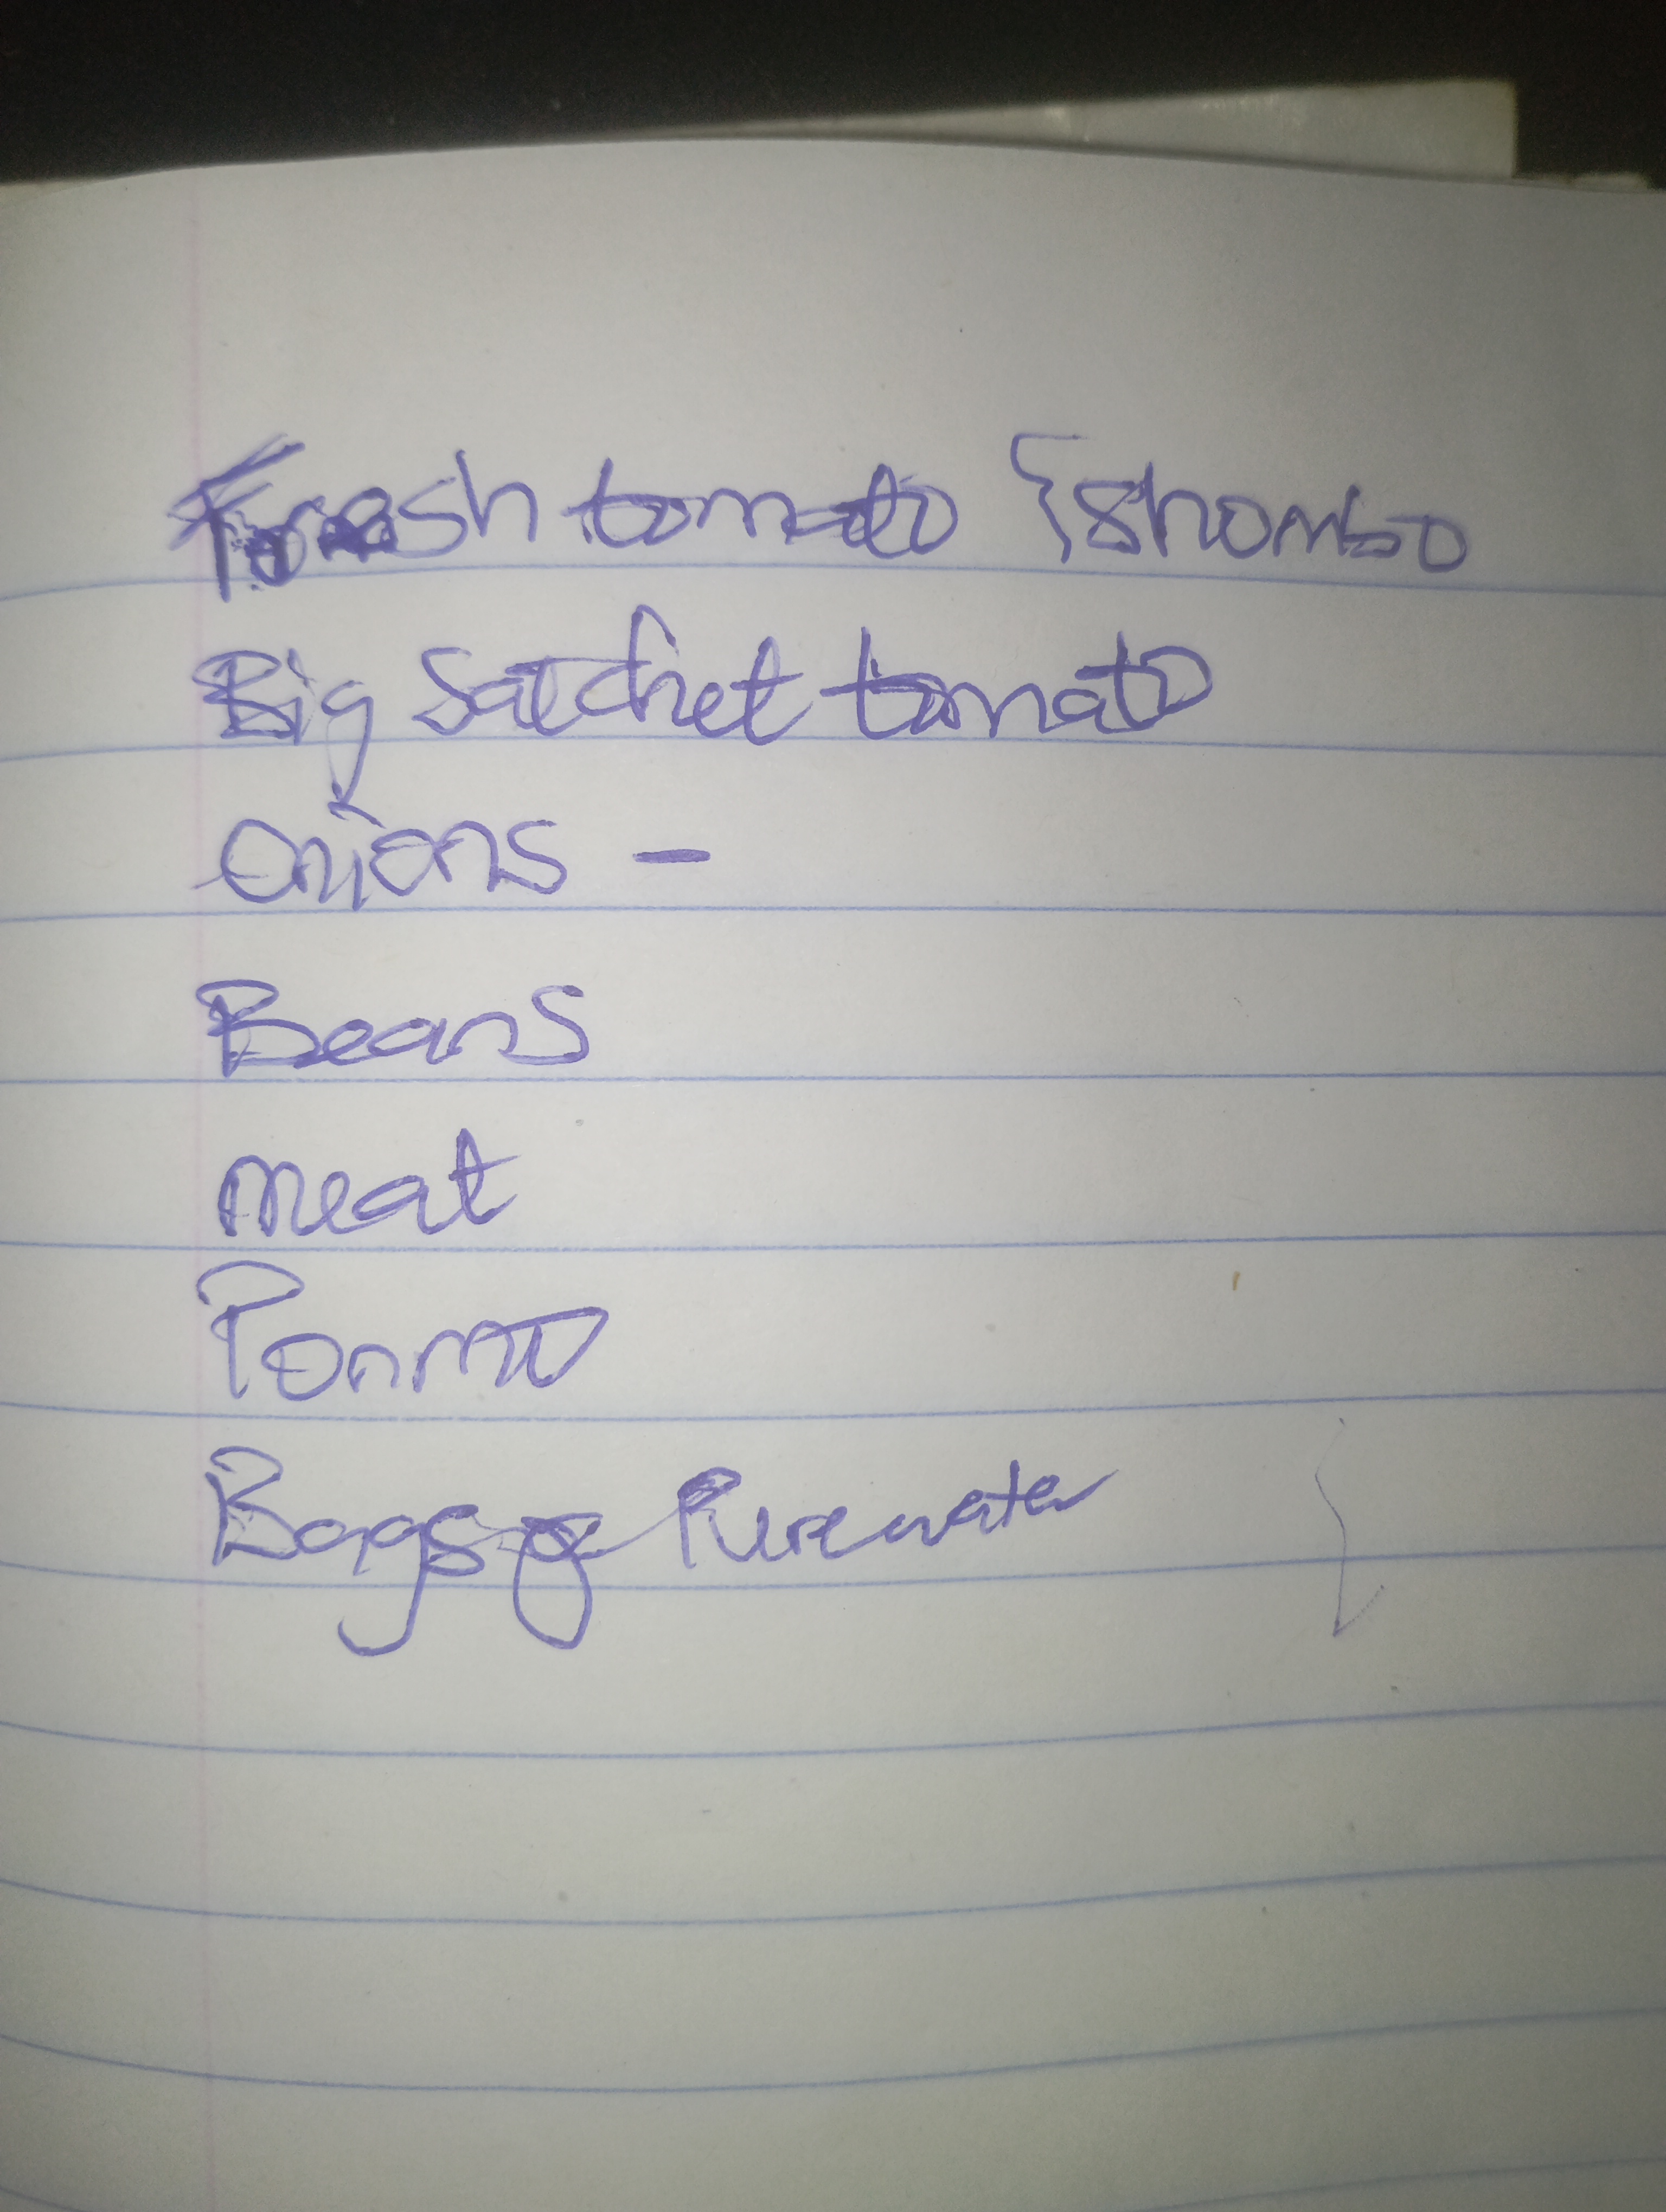 Fresh tomato {shombo
Big Satchet tomato
Onions -
Beans
meat
Ponmo
Bags of Purewater